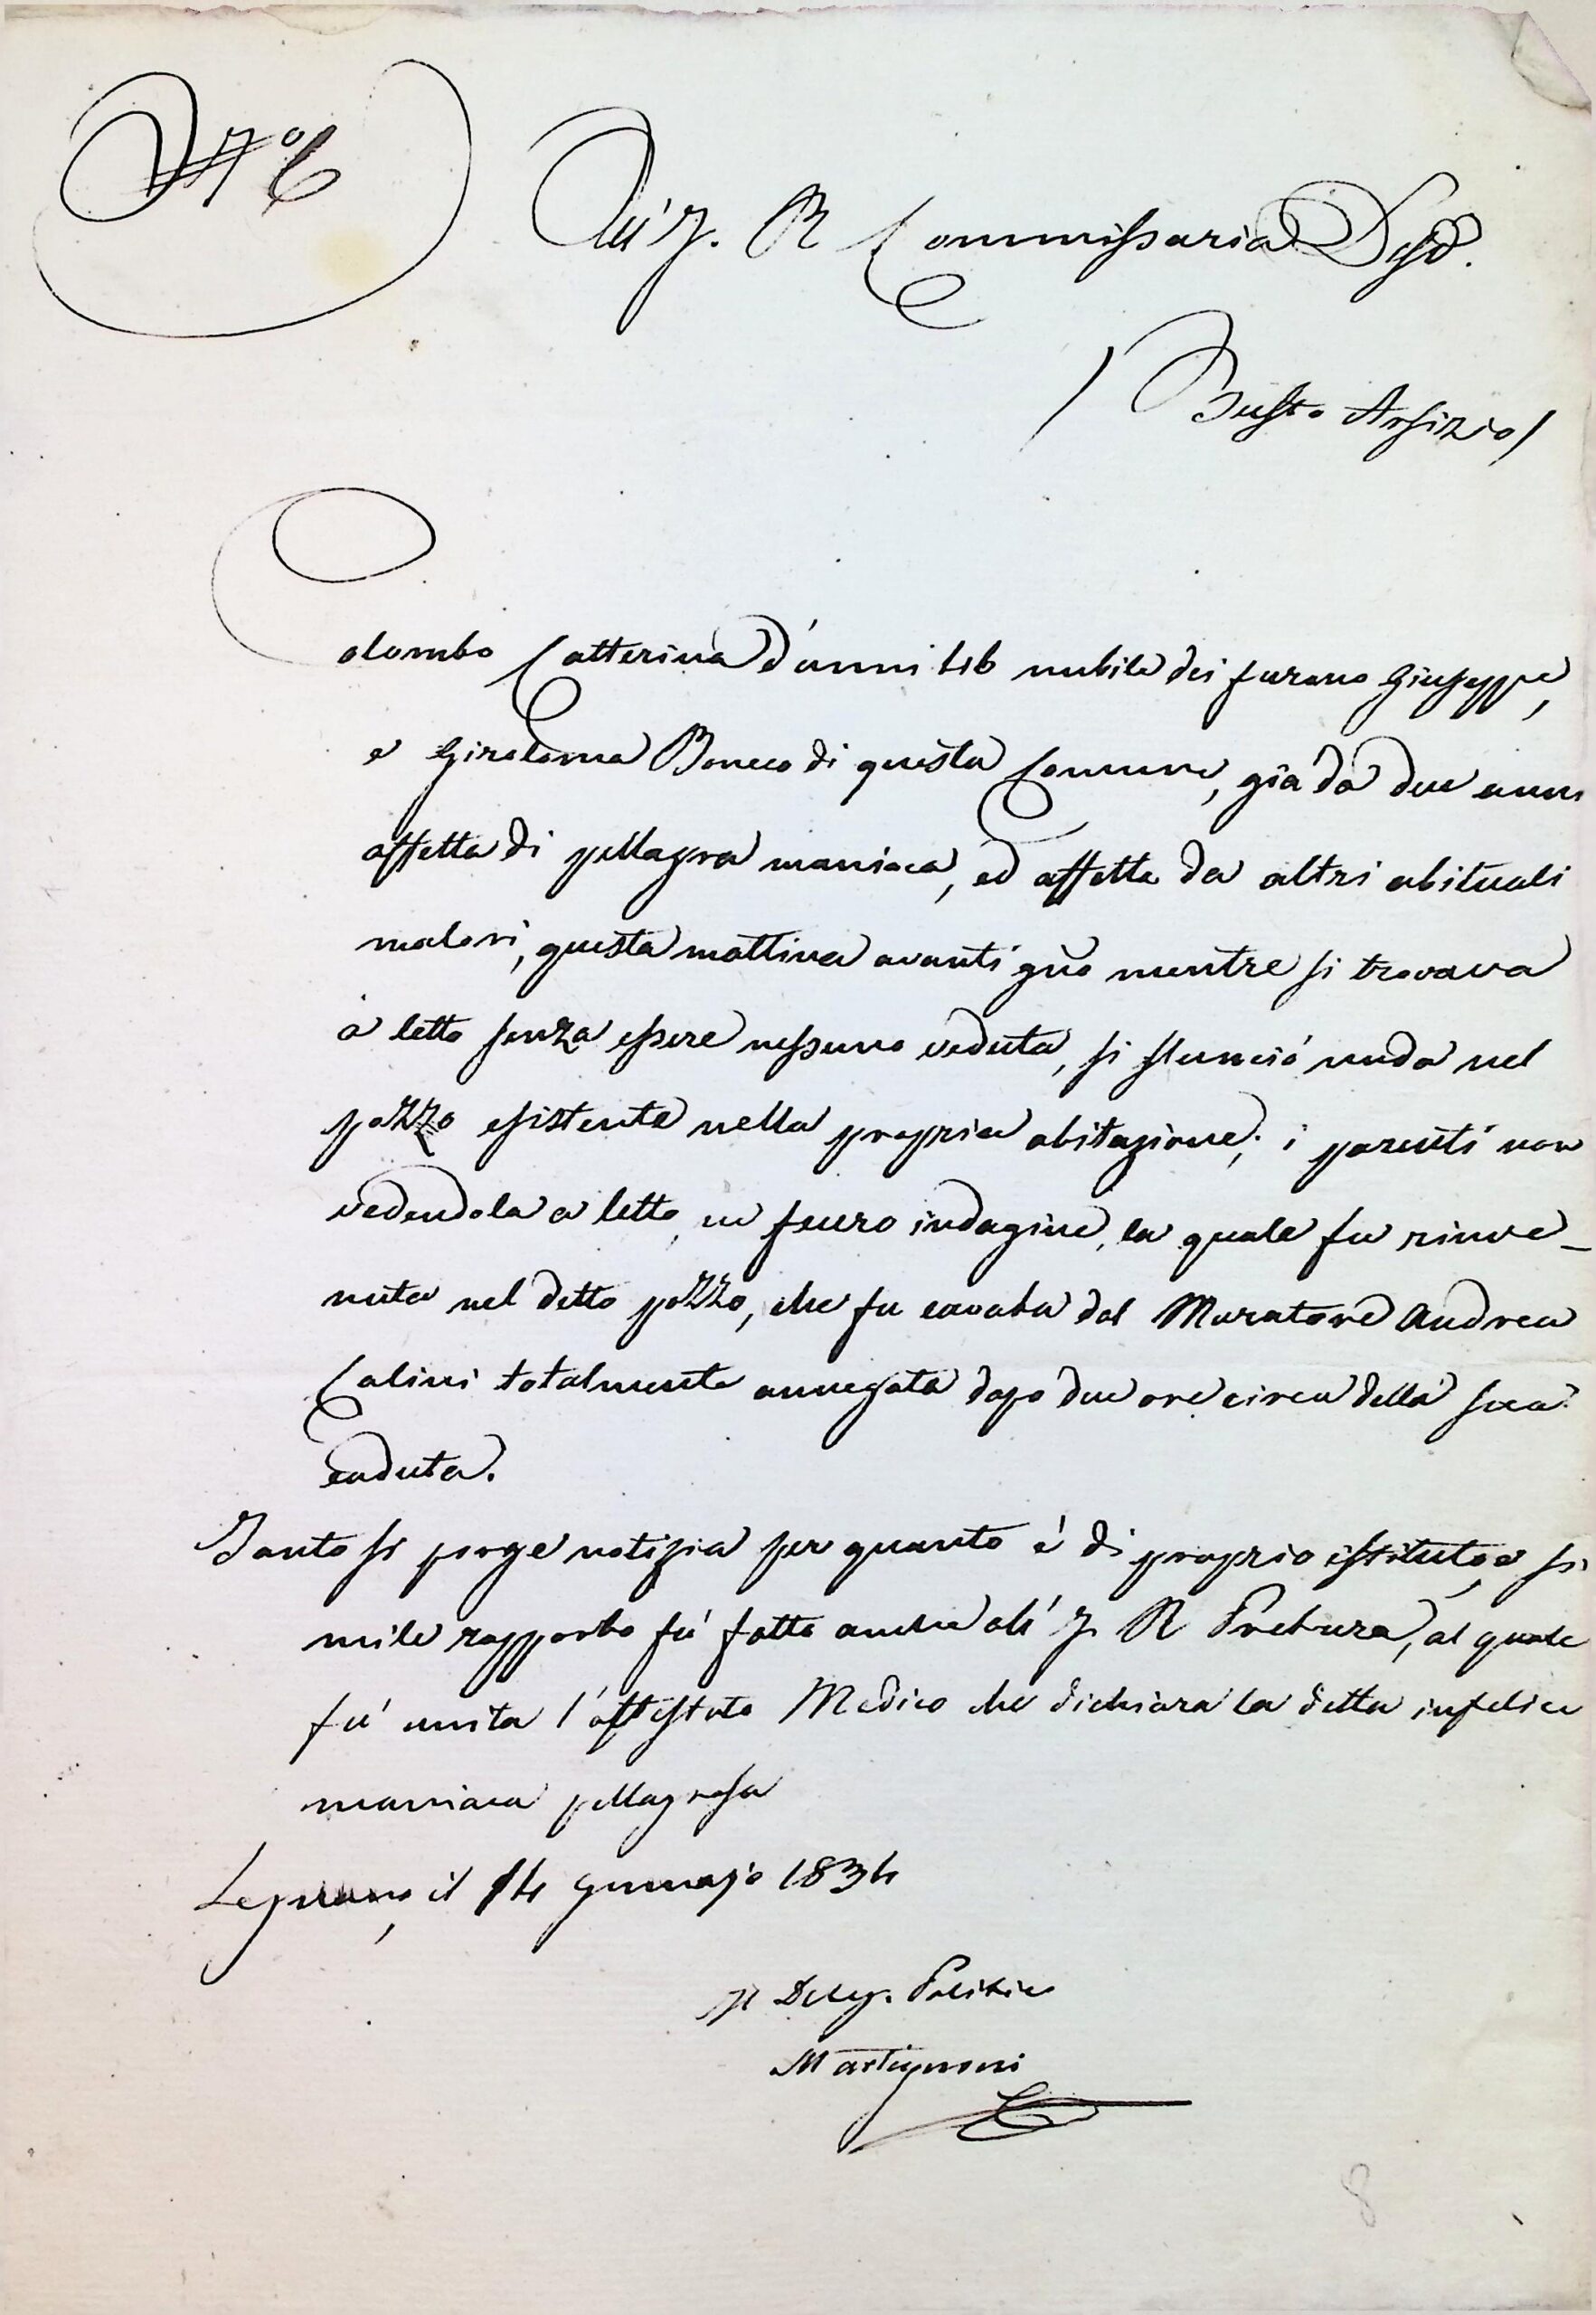 N° 6
All' I. R. Commissaria Dist.
/ Busto Arsizio /
Colombo Catterina d'anni 46 nubile dei furono Giuseppe,
e Girolama di questa Comune, già da due anni
affetta di pellagra maniaca, ed affetta da altri abituali
malori, questa mattina avanti giño mentre si trovava
a letto senza essere nessuno veduta, si slanciò nuda nel
pozzo esistente nella propria abitazione; i parenti non
vedendola a letto, ne fecero indagine, la quale fu rinve-
nuta nel detto pozzo, che fu cavata dal Muratore Andrea
Calini totalmente annegata dopo due ore circa della sua
caduta.
Tanto si porge notizia per quanto è di proprio istituto, e si
mile rapporto fù fatto anche all' I. R. Pretura, al quale
fù unita l'attestato Medico che dichiara la detta infelice
maniaca pellagrosa
Legnano, il 14 Gennajo 1834
Il Deleg. Politico
Martignoni
8